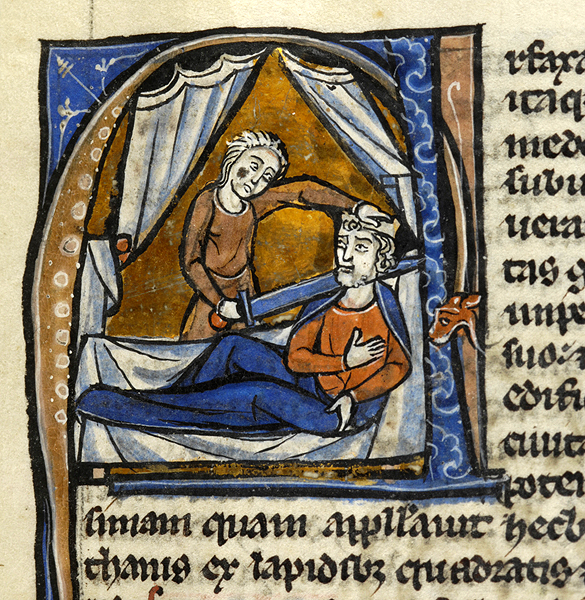 rfaxa
itaq
medo
subiu
uera
tas g
impe
suo ⁊ i
edifi
ciuita
poten
simam quam appll'auit hecb
thanis ex lapidibꝫ quadratis ⁊